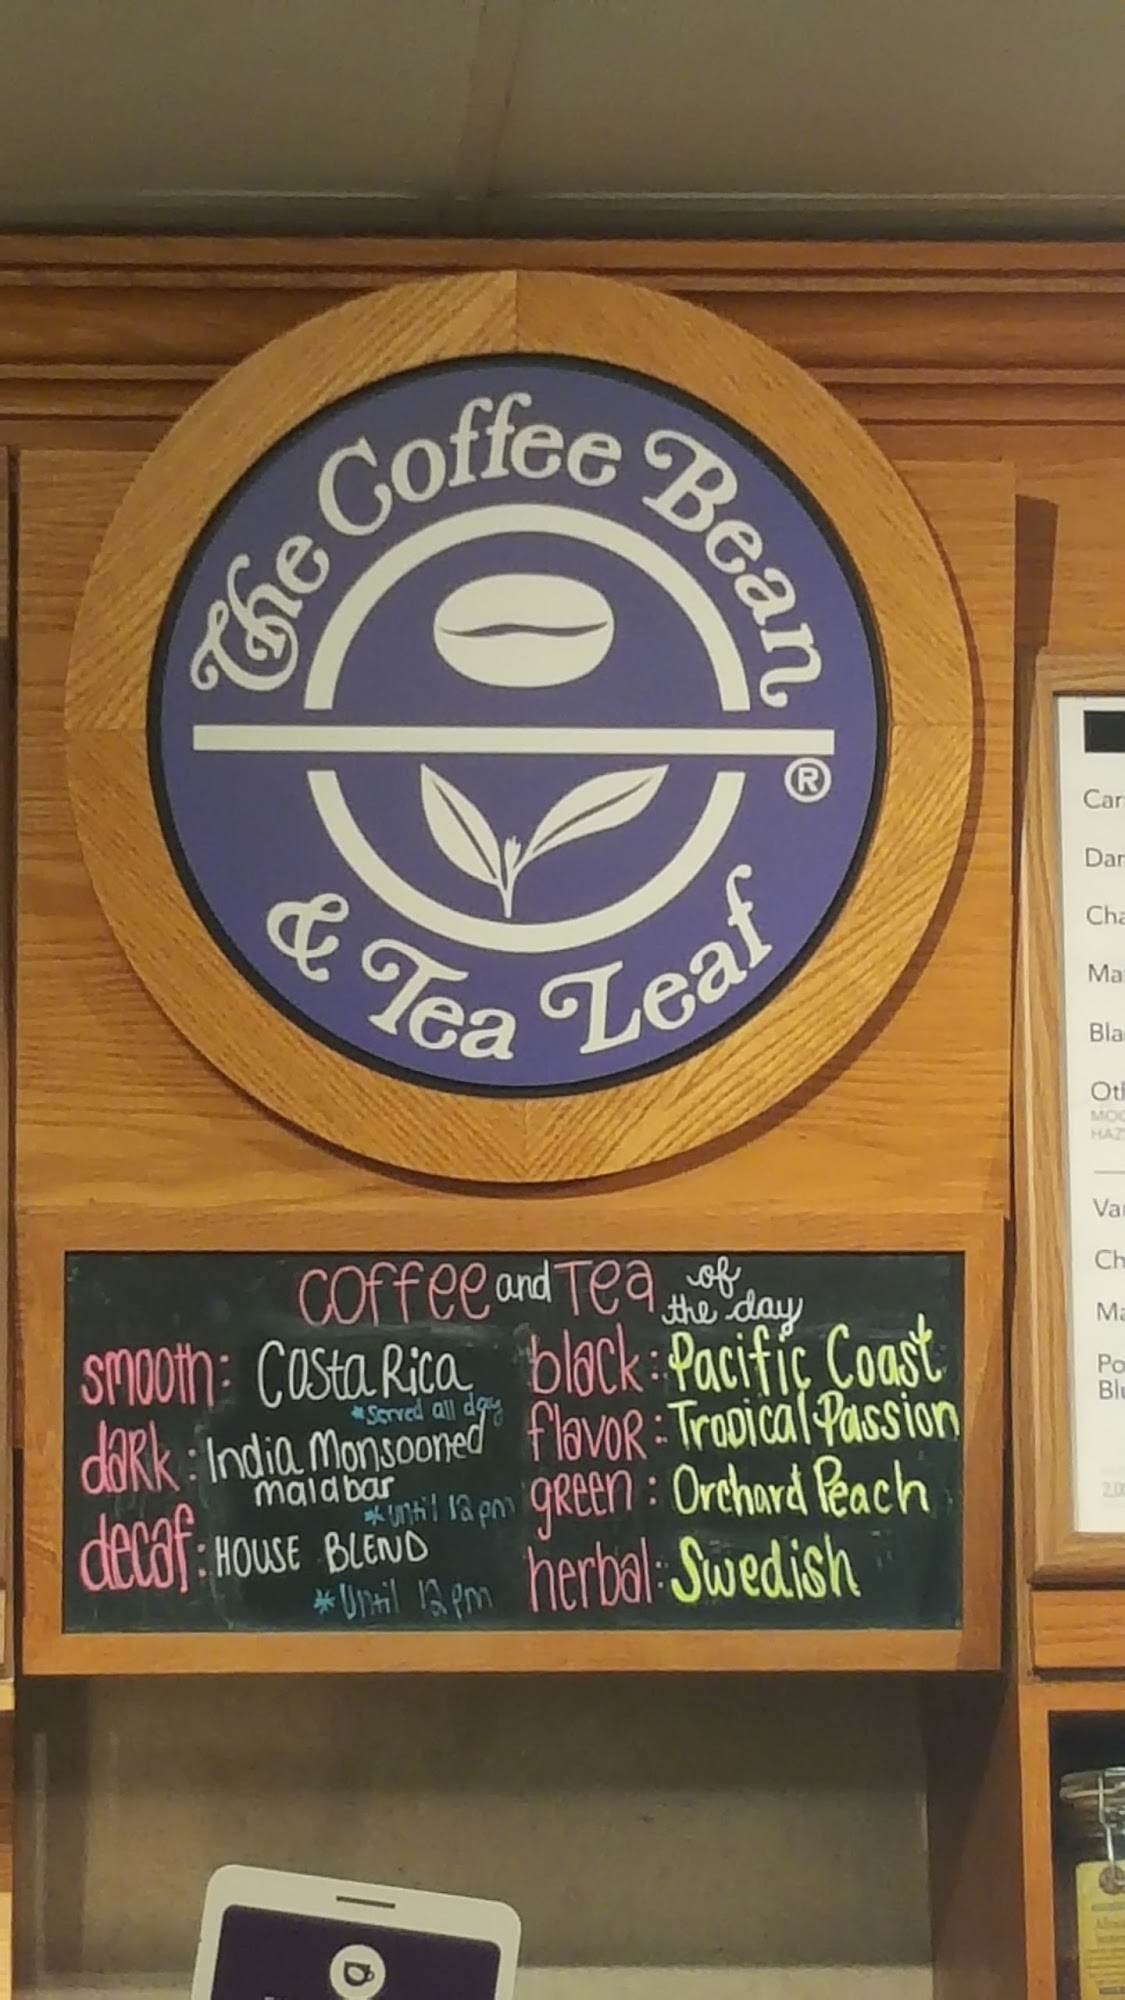 The Coffee Bean
®
& Tea Leaf
Coffee and Tea of the day
smooth: Costa Rica
*Served all day
dark: India Monsooned
malabar
*until 12pm
decaf: HOUSE BLEND
*Until 12pm
black: Pacific Coast
flavor: Tropical Passion
green: Orchard Peach
herbal: Swedish